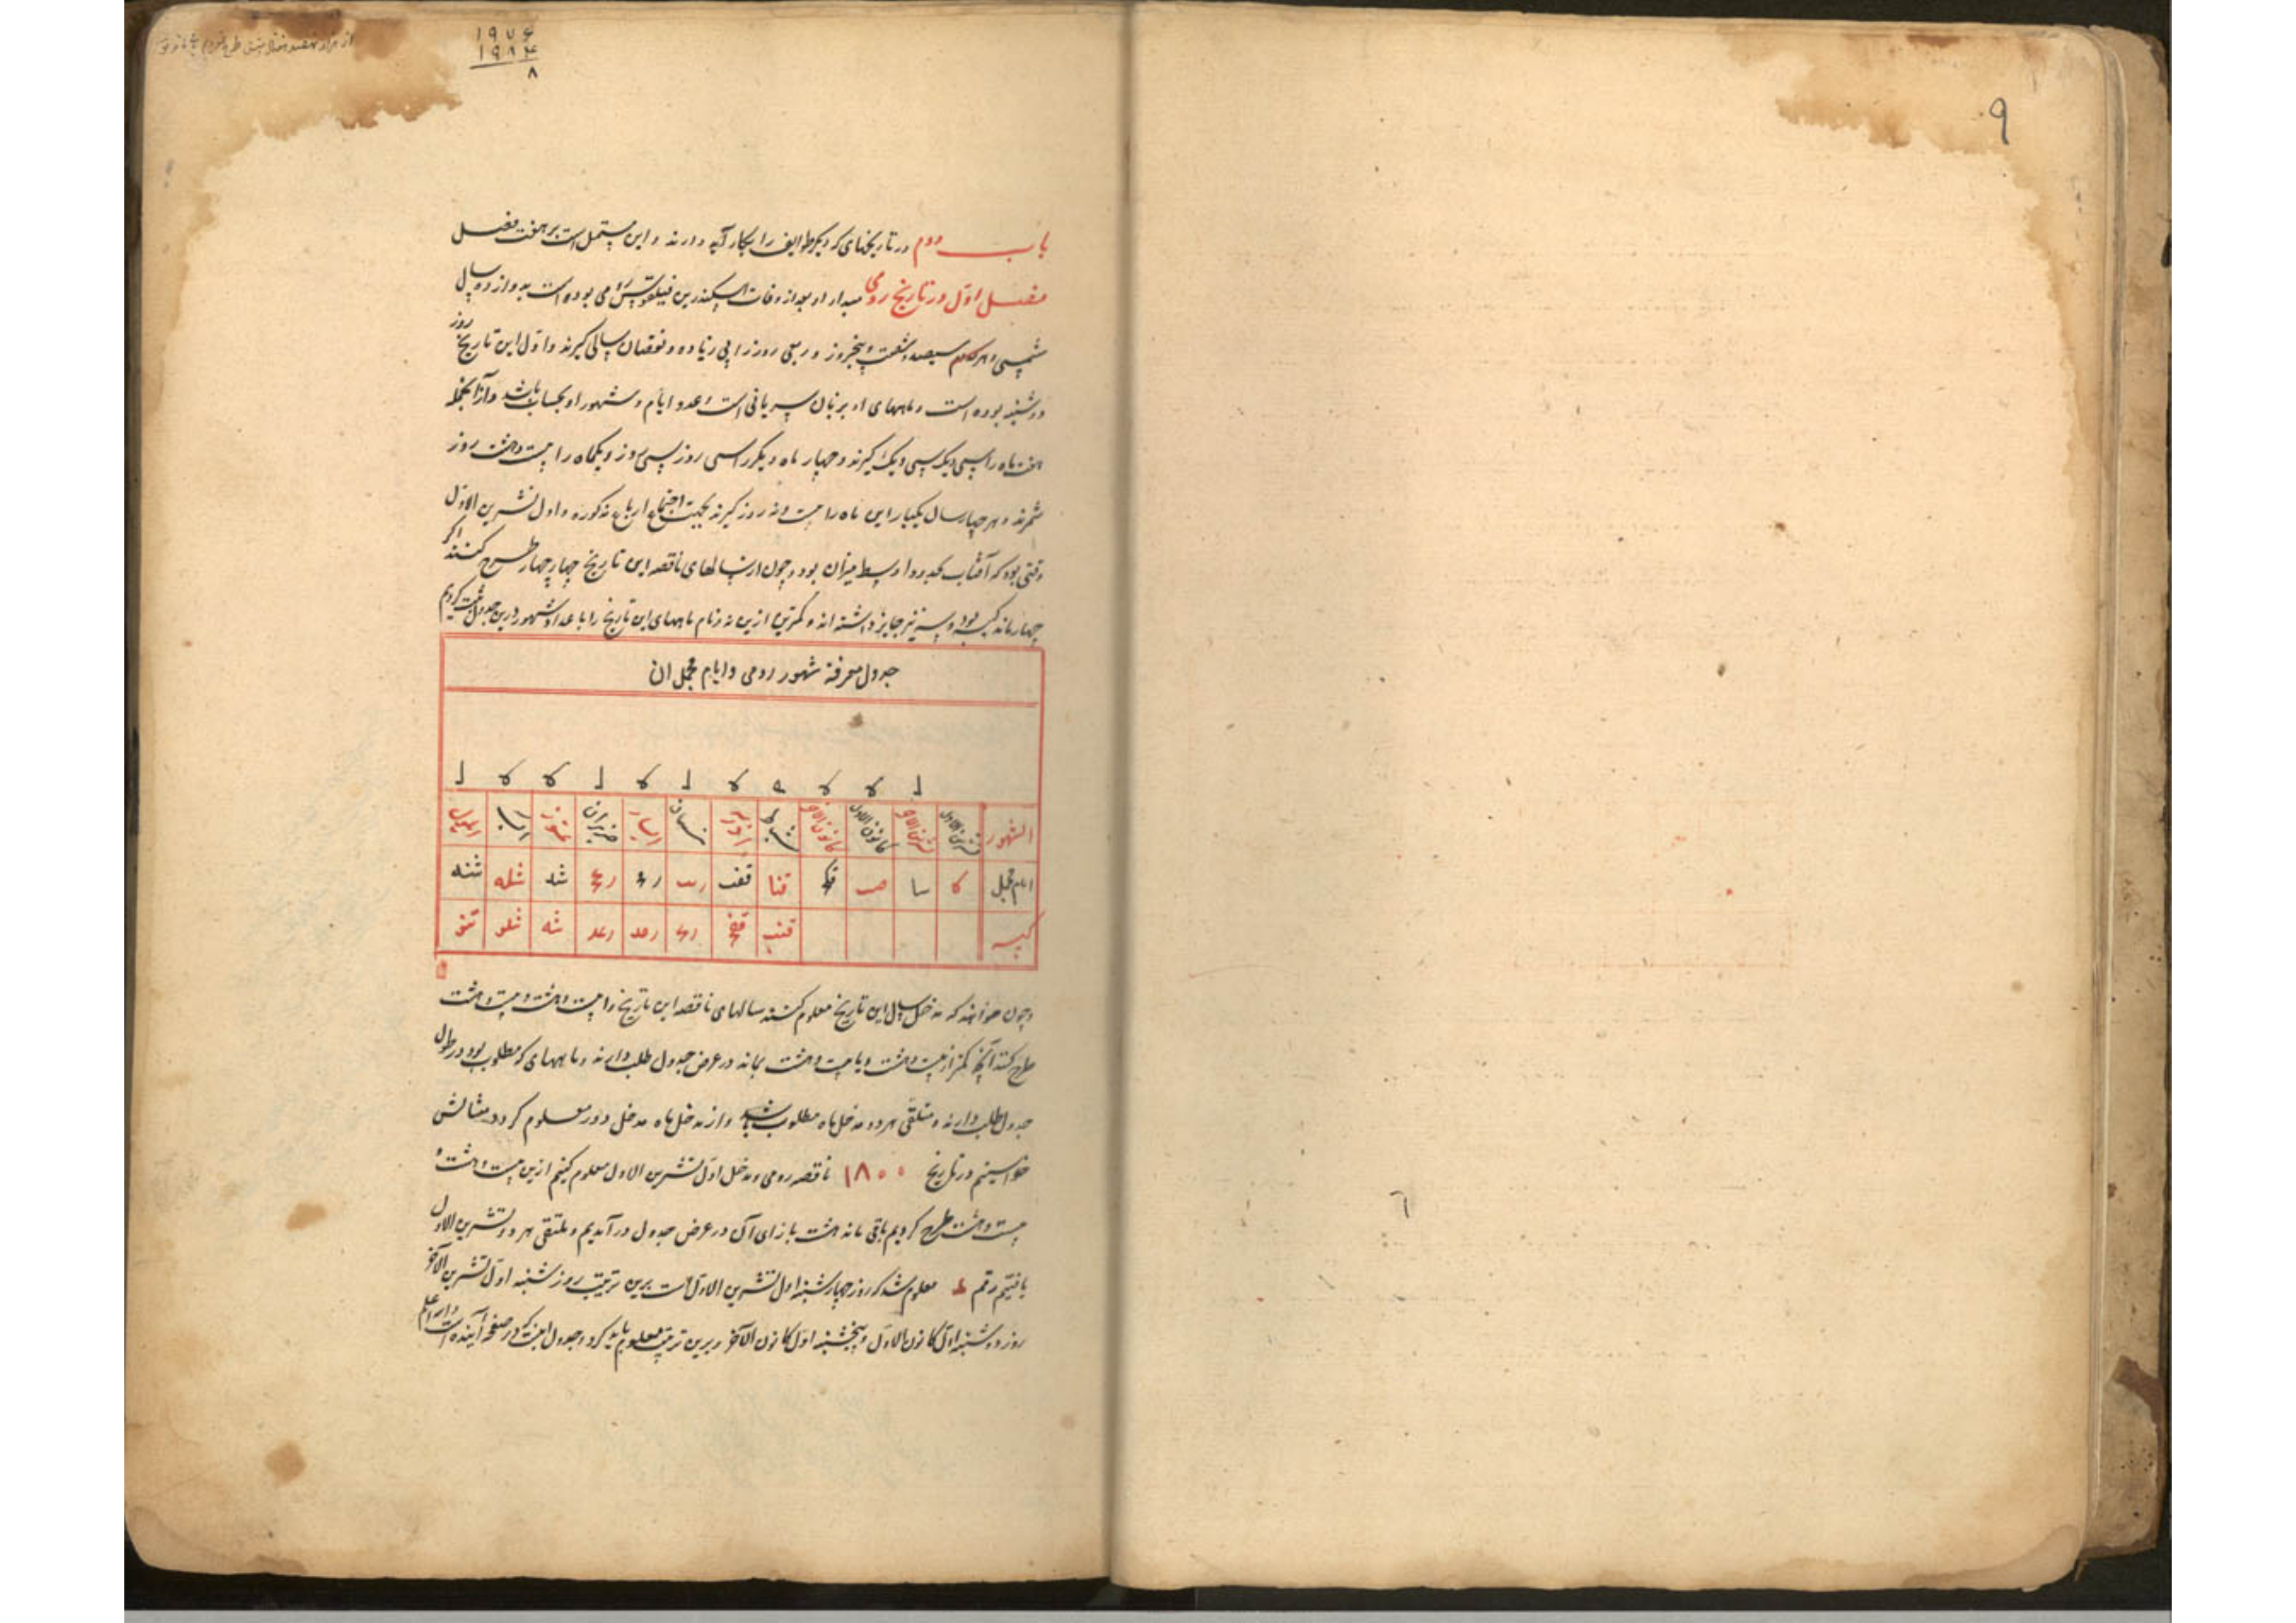 ۹
۱۹۷۶
۱۹۸۴
۸
باب دوم در تاریخهای که دیگر طوایف را بکار آید و درند و این مشتمل است بر هفت فصل
فصل اول در تاریخ رومی مبداء او بعد از وفات اسکندر بن فیلقوس رومی بوده است به دوازده سال
شمسی و هر سیصد و شصت و پنجروز و ربعی روز را بی زیاده و نقصان سالی گیرند و اول این تاریخ روز
دوشنبه بوده است و ماههای او بزبان سریانی است و عدد ایام و شهور او بحساب باشد و از آنجمله
هفت ماه را سی و یک سی و یک گیرند و چهار ماه دیگر را سی روز سی روز و یکماه را بیست و هشت روز
شمرند و هر چهار سال یکبار این ماه را بیست و نه روز گیرند بجهت اجتماع ارباع مذکوره و اول تشرین الاول
وقتی بود که آفتاب بحدود اوسط میزان بود و چون از سالهای ناقصه این تاریخ چهار چهار طرح کنند اگر
چهار ماند کبیسه بود و سه نیز جایز داشته اند و کمترین ازین نه و نام ماههای این تاریخ را با عداد شهور درین جدول ثبت کردیم
جدول معرفة شهور رومی و ایام مجمل ان
ل لا لا ه لا ل لا ل لا لا ل
الشهور تشرین الاول تشرین الاخر کانون الاول کانون الاخر شباط اذر نیسان ایار حزیران تموز اب ایلول
ایام مجمل لا سا صب قکج قنا قعب ریب رمج رعج شد شله شسه
کبیسه قنب قفج رمج رمد رعد شه شلو شسو
و چون خواهند که مدخل سال این تاریخ معلوم کنند سالهای ناقصه این تاریخ را بیست و هشت و بیست و هشت
طرح کنند آنچه کمتر از بیست و هشت و یا بیست و هشت بماند در عرض جدول طلب دارند و ماههای که مطلوب بود در طول
جدول طلب دارند و ملتقی هر دو مدخل ماه مطلوب باشد و از مدخل ماه مدخل دور معلوم کردد مثالش
خواستیم در تاریخ ۱۸۰۰ ناقصه رومی و مدخل اول تشرین الاول معلوم کنیم ازین بیست و هشت و
بیست و هشت طرح کردیم باقی ماند هشت بازای آن در عرض جدول درآمدیم و ملتقی هر دو تشرین الاول
یافتیم رقم د معلوم شد که روز چهارشنبه اول تشرین الاول است برین ترتیب روز شنبه اول تشرین الآخر
روز دوشنبه اول کانون الاول و پنجشنبه اول کانون الآخر و برین ترتیب معلوم باید کرد و جدول اینست که در صفحه آینده است والله اعلم